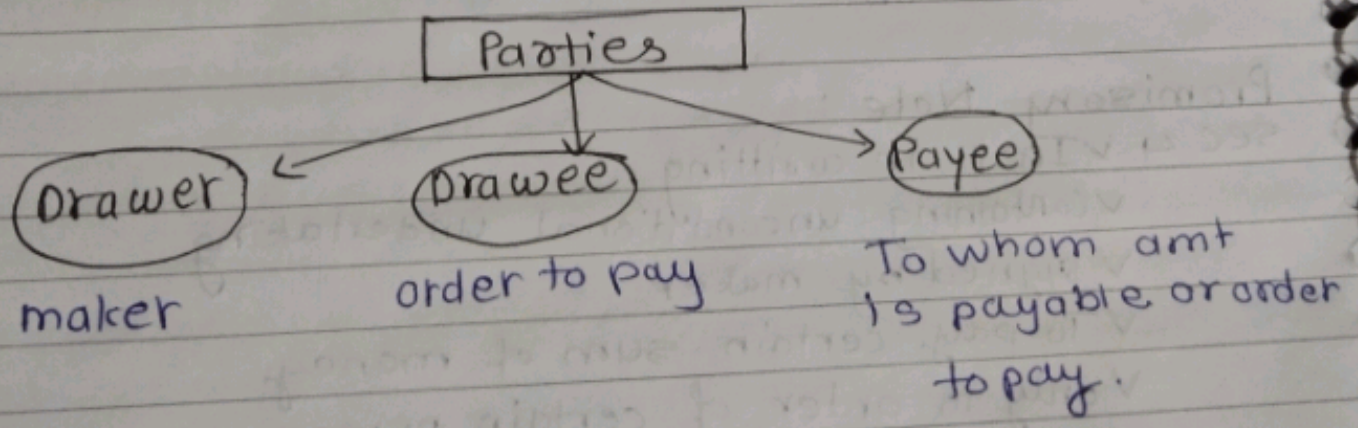 Parties
Drawer
Drawee
Payee
maker
order to pay
To whom amt
is payable or order
to pay.